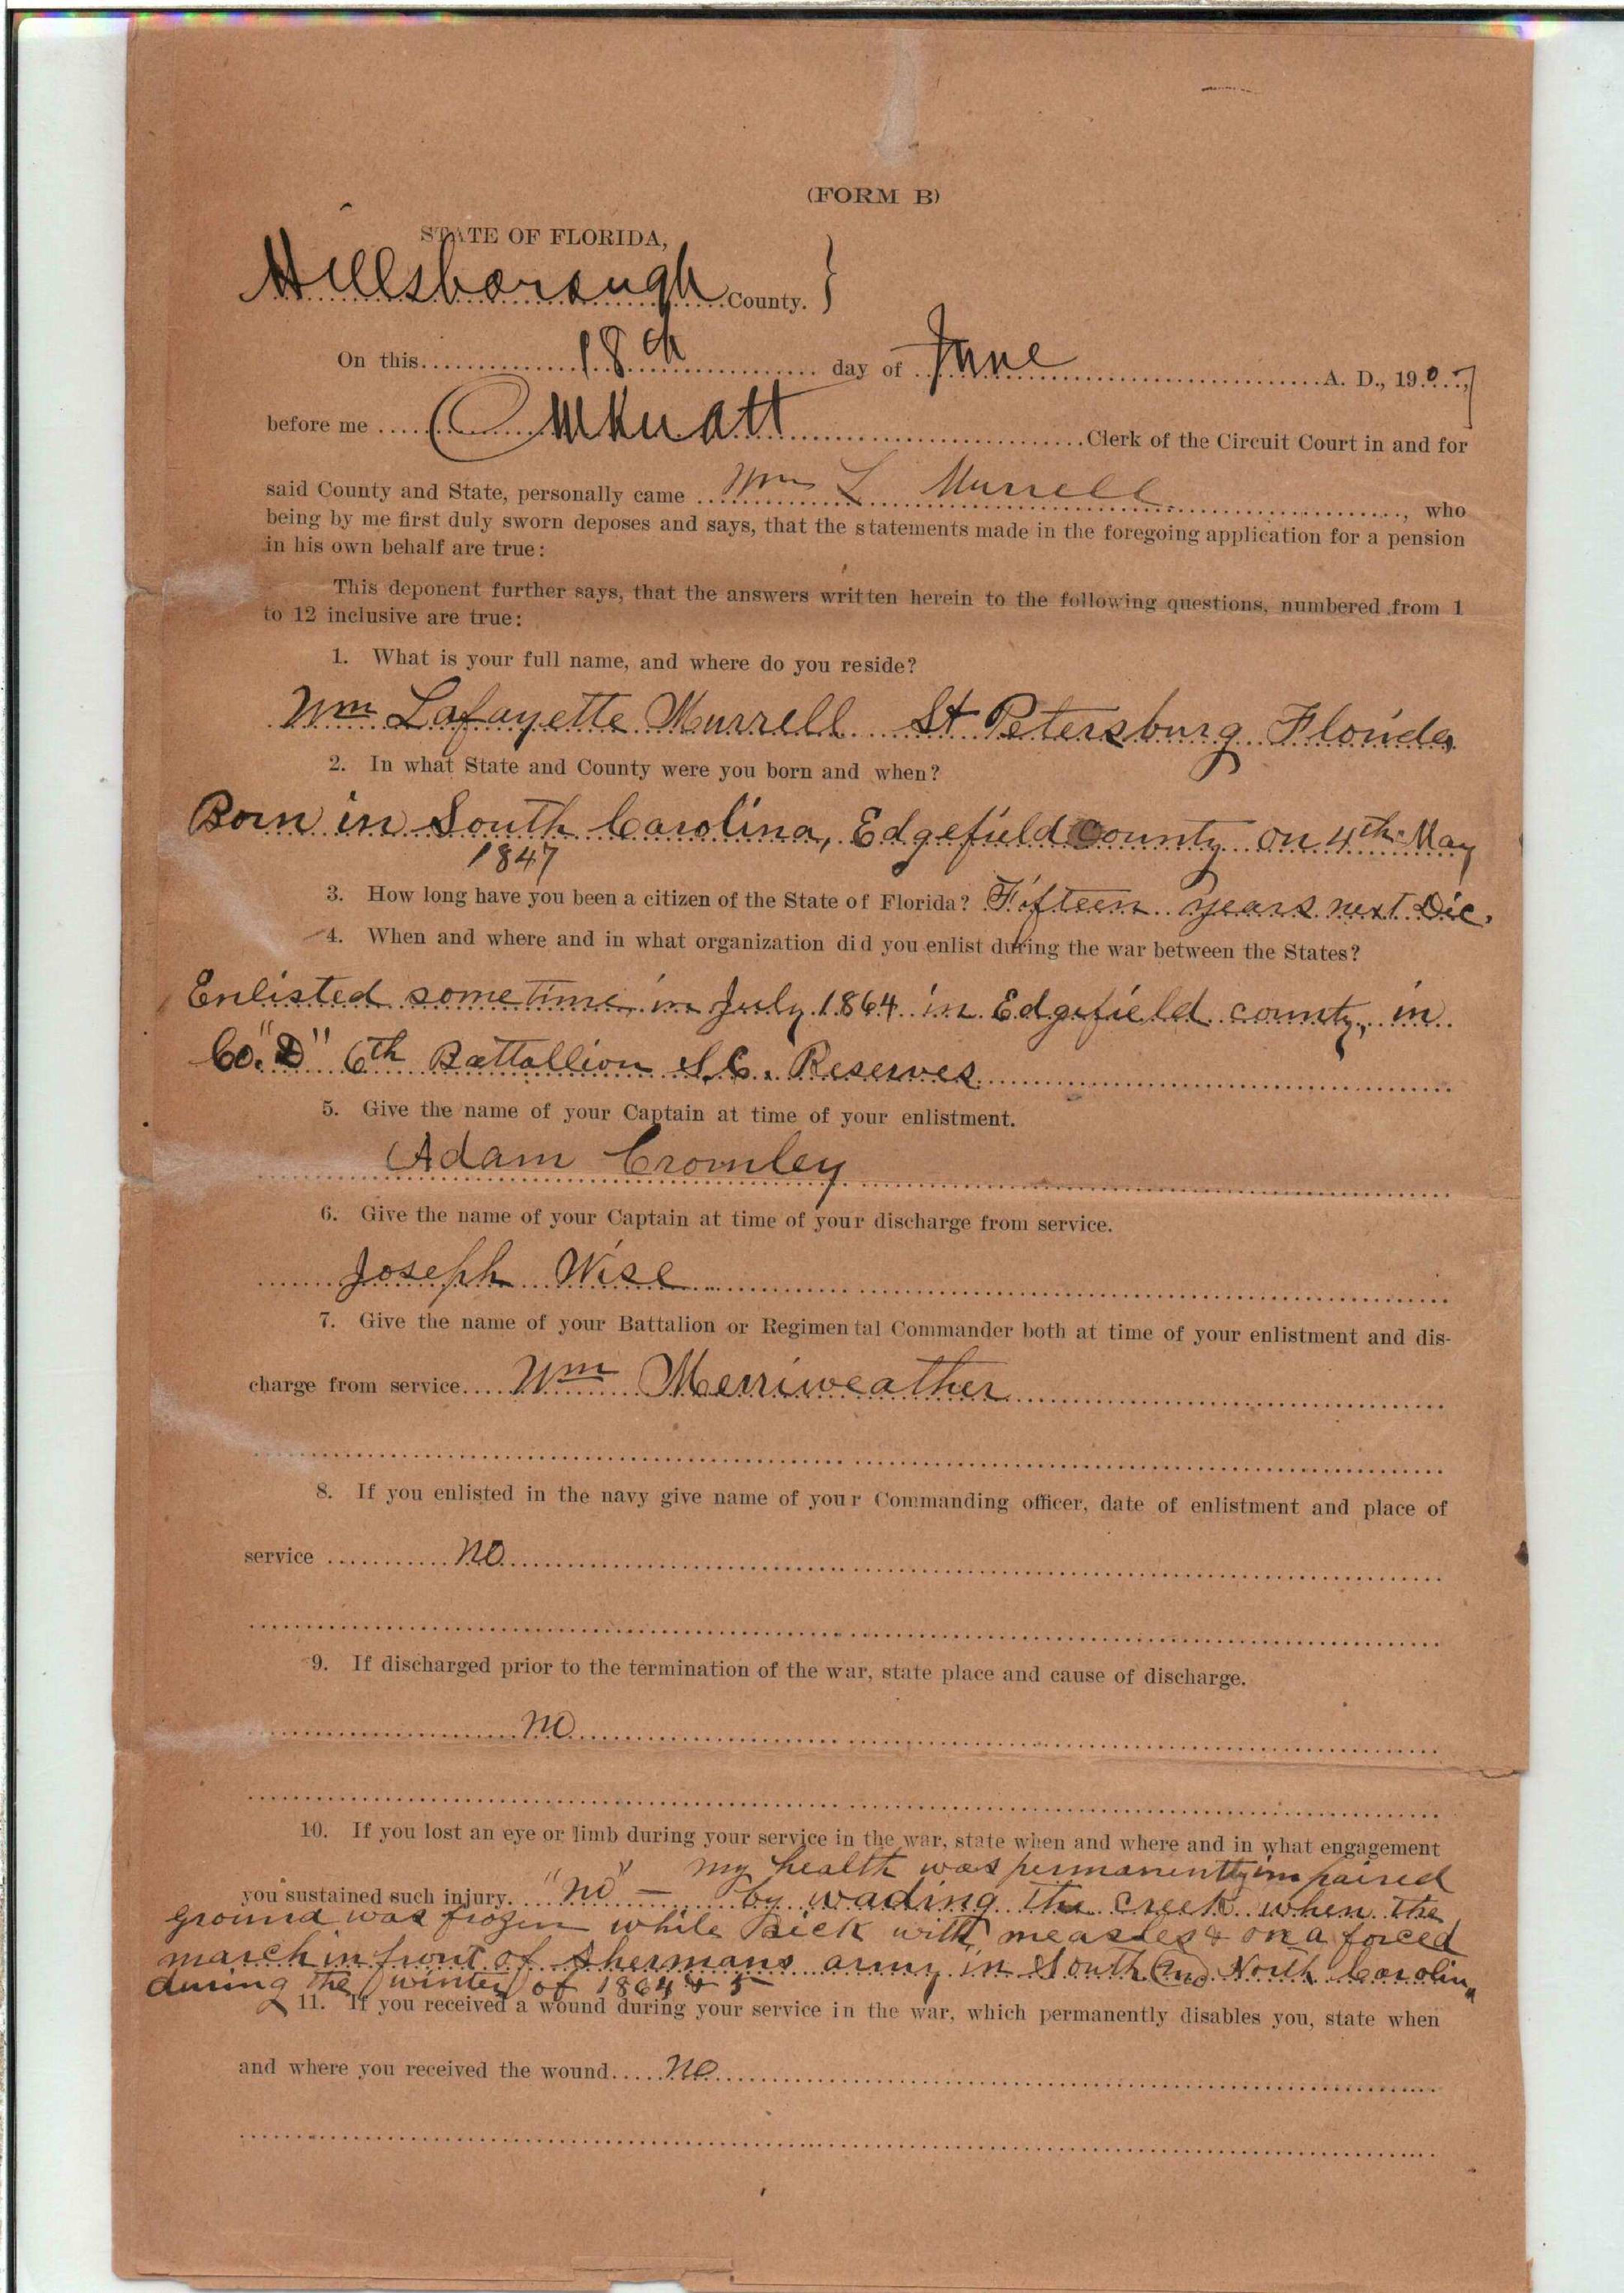 (FORM B)
STATE OF FLORIDA,
Hillsborough County. }
On this 18th day of June A. D., 1907,
before me Clerk of the Circuit Court in and for
said County and State, personally came Wm L Murrell, who
being by me first duly sworn deposes and says, that the statements made in the foregoing application for a pension
in his own behalf are true:
This deponent further says, that the answers written herein to the following questions, numbered from 1
to 12 inclusive are true:
1. What is your full name, and where do you reside?
Wm Lafayette Murrell St Petersburg Florida
2. In what State and County were you born and when?
Born in South Carolina, Edgefield County on 4th May
1847
3. How long have you been a citizen of the State of Florida? Fifteen years next Dec.
4. When and where and in what organization did you enlist during the war between the States?
Enlisted sometime in July 1864 in Edgefield county, in
Co. "D" 6th Battallion S.C. Reserves
5. Give the name of your Captain at time of your enlistment.
Adam Cromley
6. Give the name of your Captain at time of your discharge from service.
Joseph Wise
7. Give the name of your Battalion or Regimental Commander both at time of your enlistment and dis-
charge from service Wm Merriweather
8. If you enlisted in the navy give name of your Commanding officer, date of enlistment and place of
service no
9. If discharged prior to the termination of the war, state place and cause of discharge.
no
10. If you lost an eye or limb during your service in the war, state when and where and in what engagement
my health was permanently impaired
you sustained such injury. "no" — by wading the creek when the
ground was frozen while sick with measles & on a forced
march in front of Shermans army in South and North Carolina
during the winter of 1864 & 5
11. If you received a wound during your service in the war, which permanently disables you, state when
and where you received the wound no